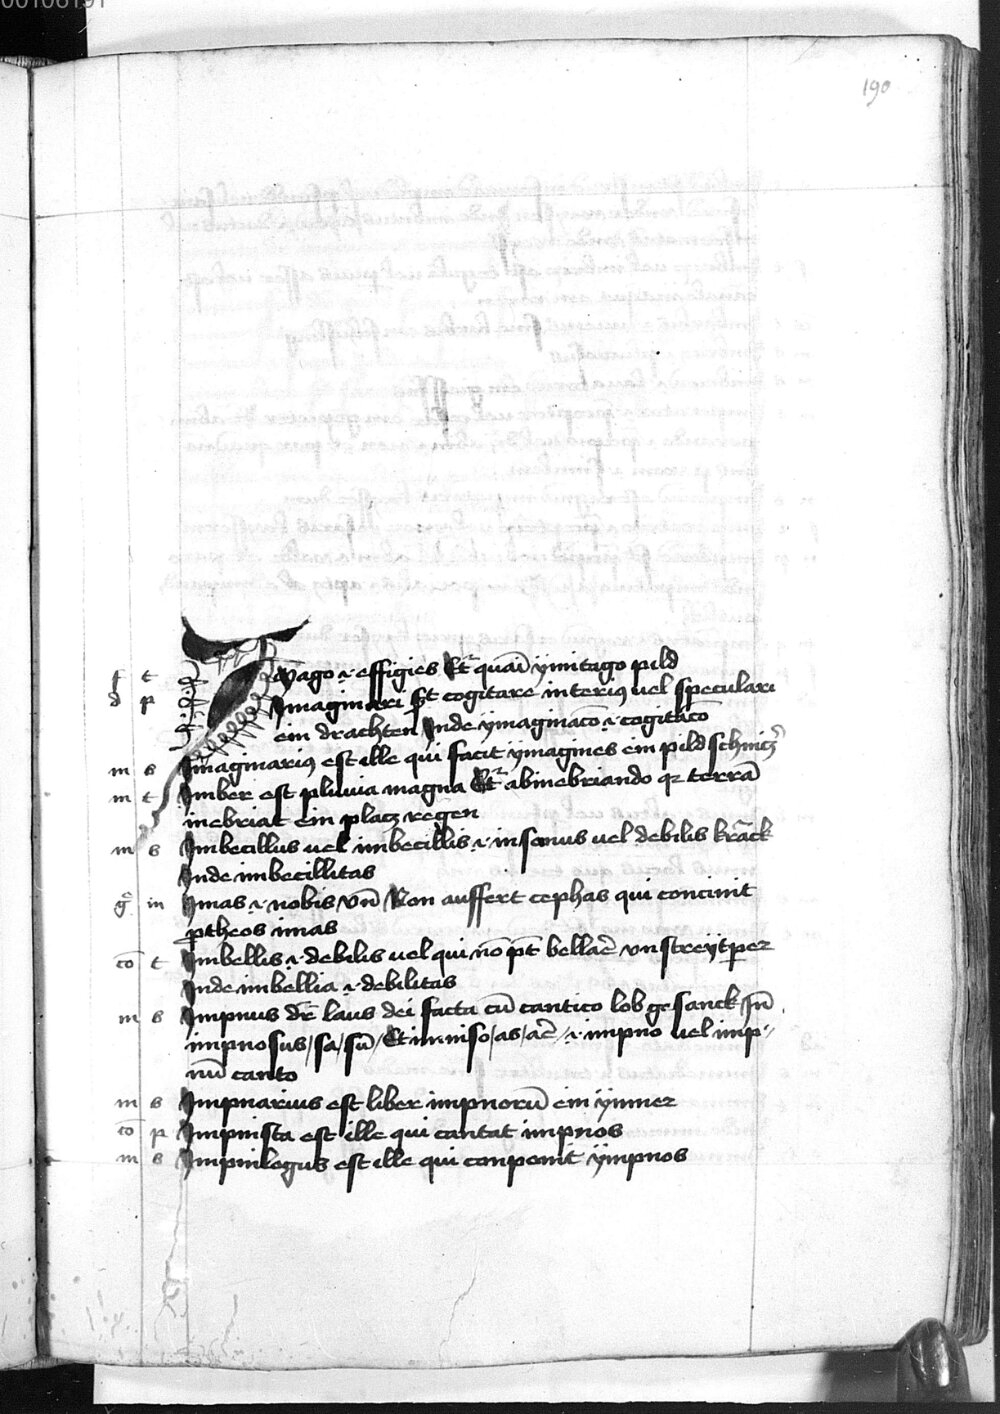 190
f t Ymago .i. effigies Et̄ quasi ymitago pild
d p Imaginari est cogitare interiꝰ uel speculari
ein drachten Inde ymaginac̄o .i. cogitac̄o
m s Imaginariꝰ est ille qui facit ymagines ein pild schnicz̄
m t Imber est pluvia magna Et̄ ab inebriando qꝛ terrā
inebriat ein placz regen
m s Imbecillus uel imbecillis .i. insanus uel debilis kranck
Inde imbecillitas
g̅ in Imas .i. nobis vn̄ Non auffert cephas qui concinit
ꝓtheos imas
cō t Imbellis .i. debilis uel qui nō pt̄ bellar̄ vnstreytper
Inde imbellia .i. debilitas
m s Impnus dr̄ laus dei facta cū cantico lob gesanck Jn̄
impnosus / sa / sū / Et imniso / as / ar̄ / .i. impno uel imp⸗
nū canto
m s Impnarius est liber impnorū ein ymner
cō p Impnista est ille qui cantat impnos
m s Impnilogus est ille qui conponit ympnos